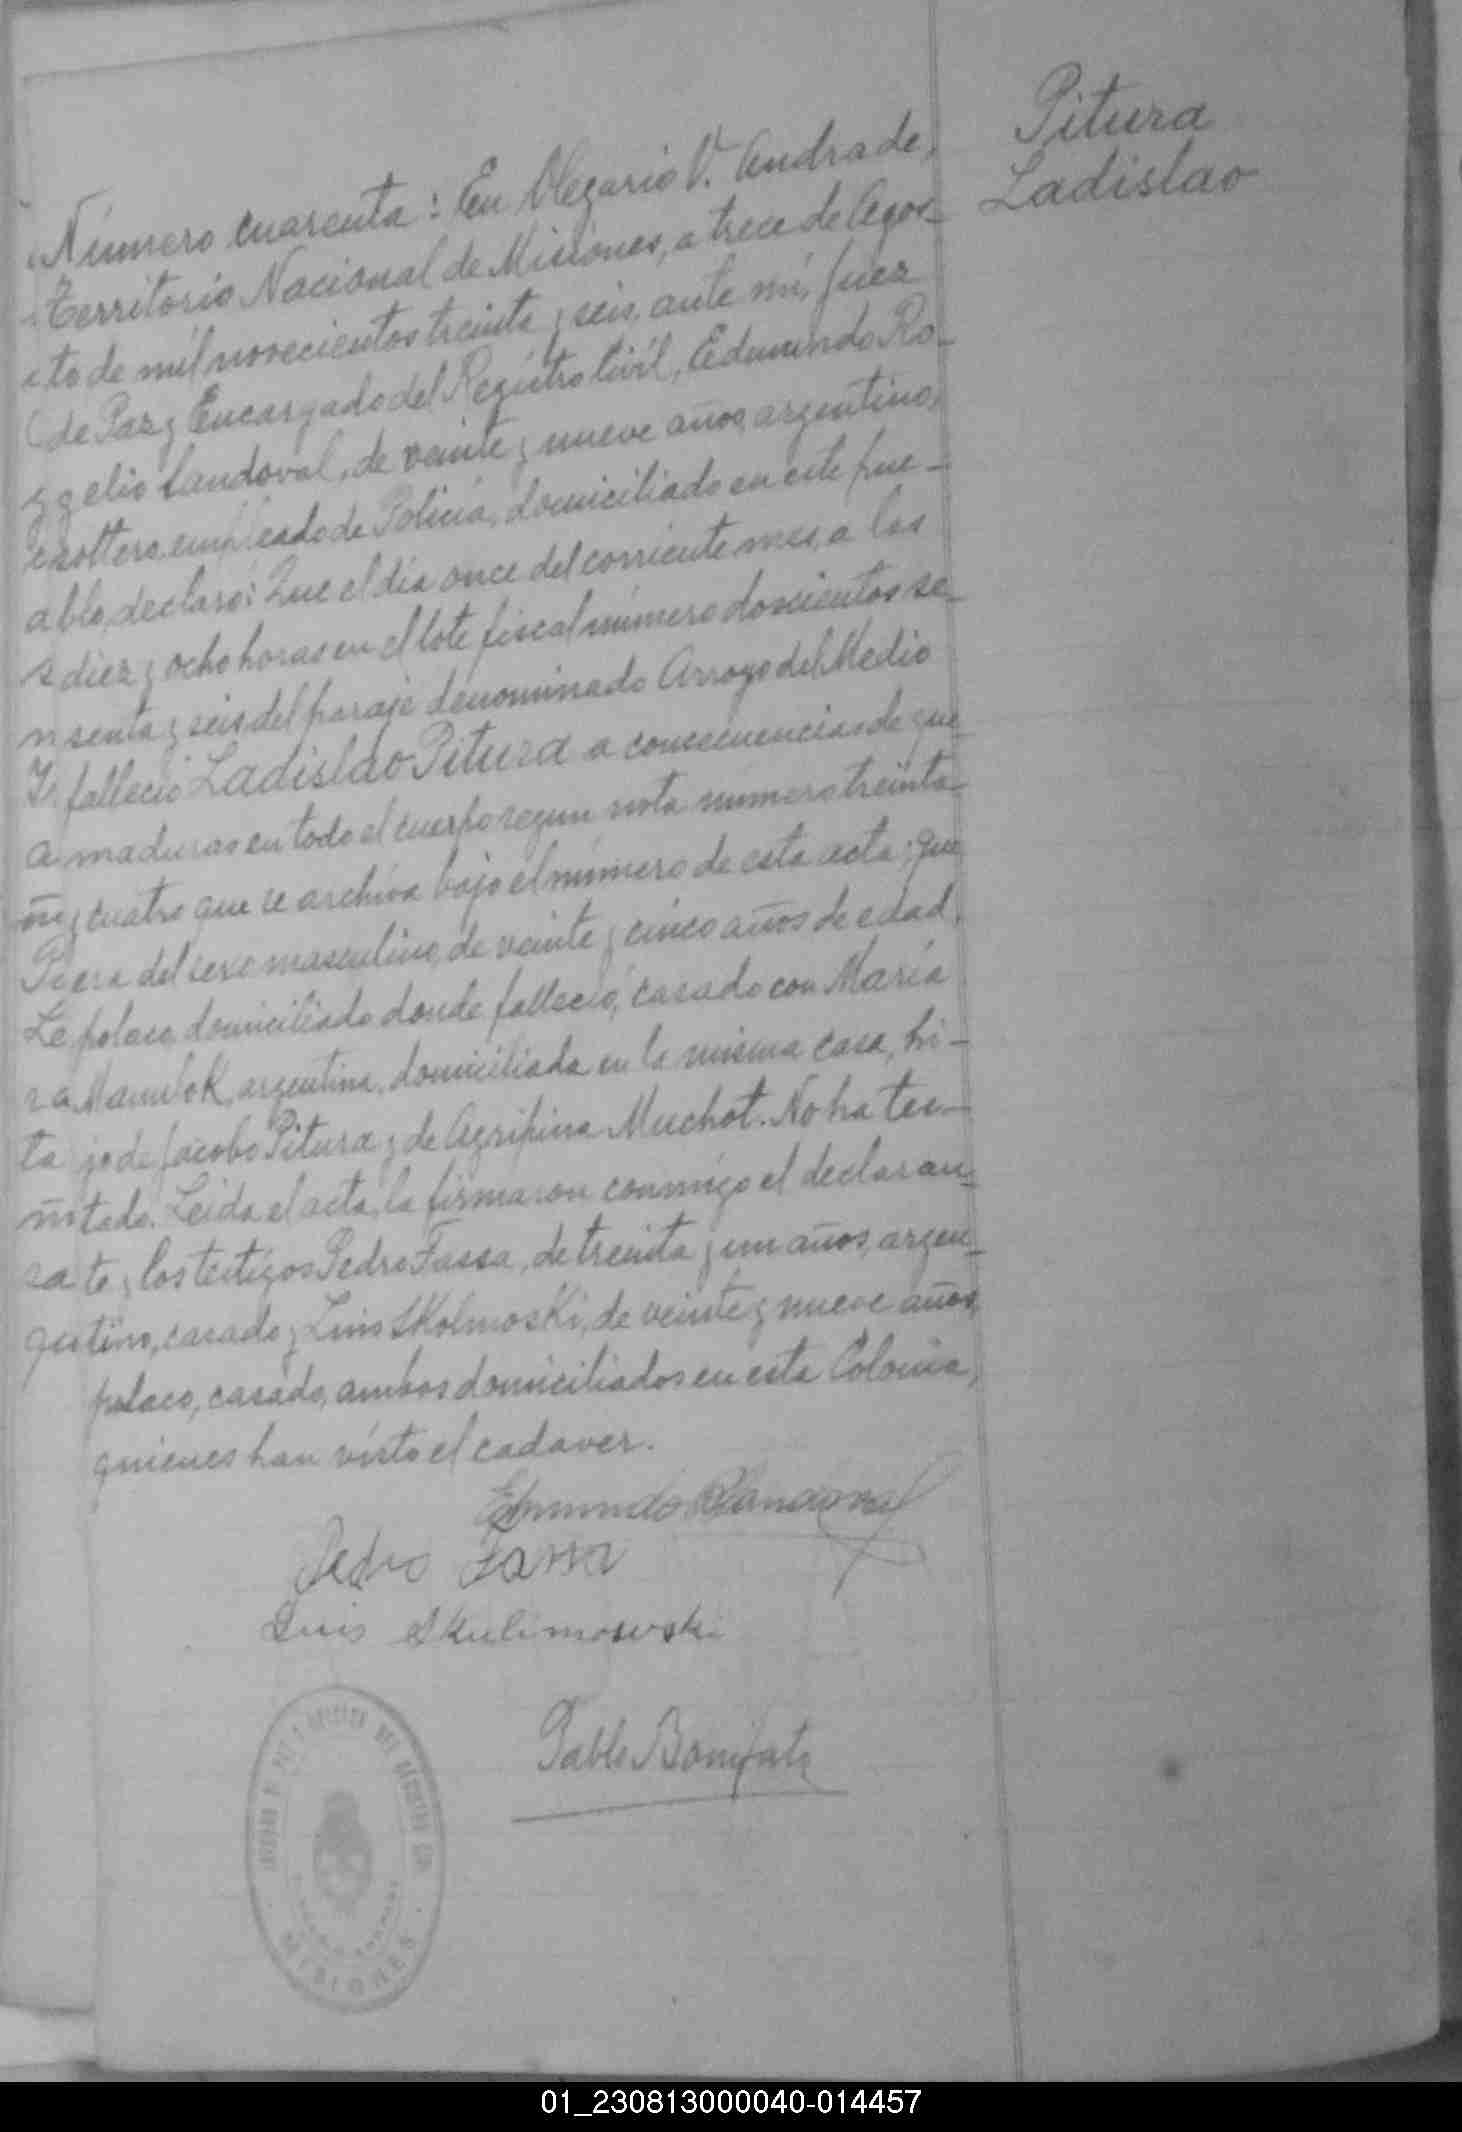 Pitura
Ladislao
Número cuarenta: En Olegario V. Andrade,
Territorio Nacional de Misiones, a trece de Agos-
to de mil novecientos treinta y seis, ante mí, Juez
de Paz y Encargado del Registro Civil, Edmundo Ro-
gelio Sandoval, de veinte y nueve años, argentino,
soltero, empleado de Policía, domiciliado en este pue-
blo, declaró: Que el día once del corriente mes, a las
diez y ocho horas en el lote fiscal número doscientos se-
senta y seis del paraje denominado Arroyo del Medio
falleció Ladislao Pitura a consecuencias de que-
maduras en todo el cuerpo segun nota numero treinta
y cuatro que se archiva bajo el número de esta acta; que
era del sexo masculino, de veinte y cinco años de edad,
polaco, domiciliado donde falleció, casado con María
argentina, domiciliada en la misma casa, hi-
jo de Jacobo Pitura y de Agripina Muchot. No ha tes-
tado. Leida el acta, la firmaron conmigo el declaran-
te y los testigos Pedro Fassa, de treinta y un años, argen-
tino, casado y Luis SKolmosKi, de veinte y nueve años,
polaco, casado, ambos domiciliados en esta Colonia,
quienes han visto el cadaver.
Edmundo RSandoval
Pedro Fassa
Luis Skulimowski
Pablo
MISIONES
01_230813000040-014457